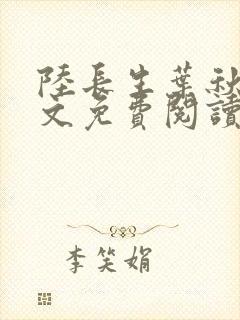 陸長生葉秋
文免費閱讀
李笑娟